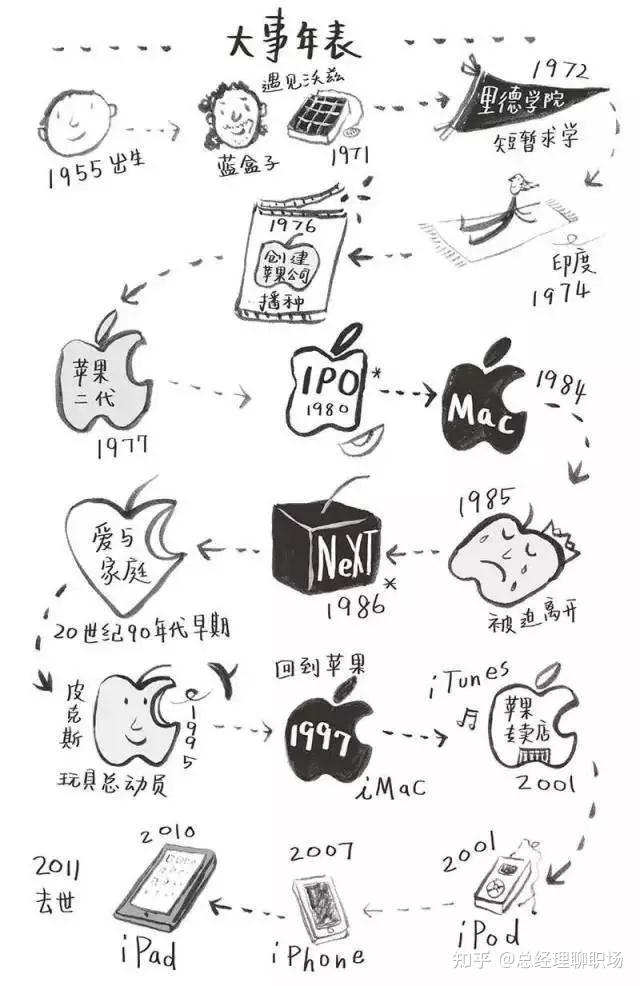 大事年表
1955出生
遇见沃兹
蓝盒子
1971
1972
里德学院
短暂求学
印度
1974
1976
创建
苹果公司
播种
苹果
二代
1977
IPO*
1980
Mac
1984
1985
被迫离开
NeXT
1986*
爱与
家庭
20世纪90年代早期
皮克斯
1995
玩具总动员
回到苹果
1997
iMac
iTunes
苹果
专卖店
2001
2001
iPod
2007
iPhone
2010
iPad
2011
去世
知乎 @总经理聊职场